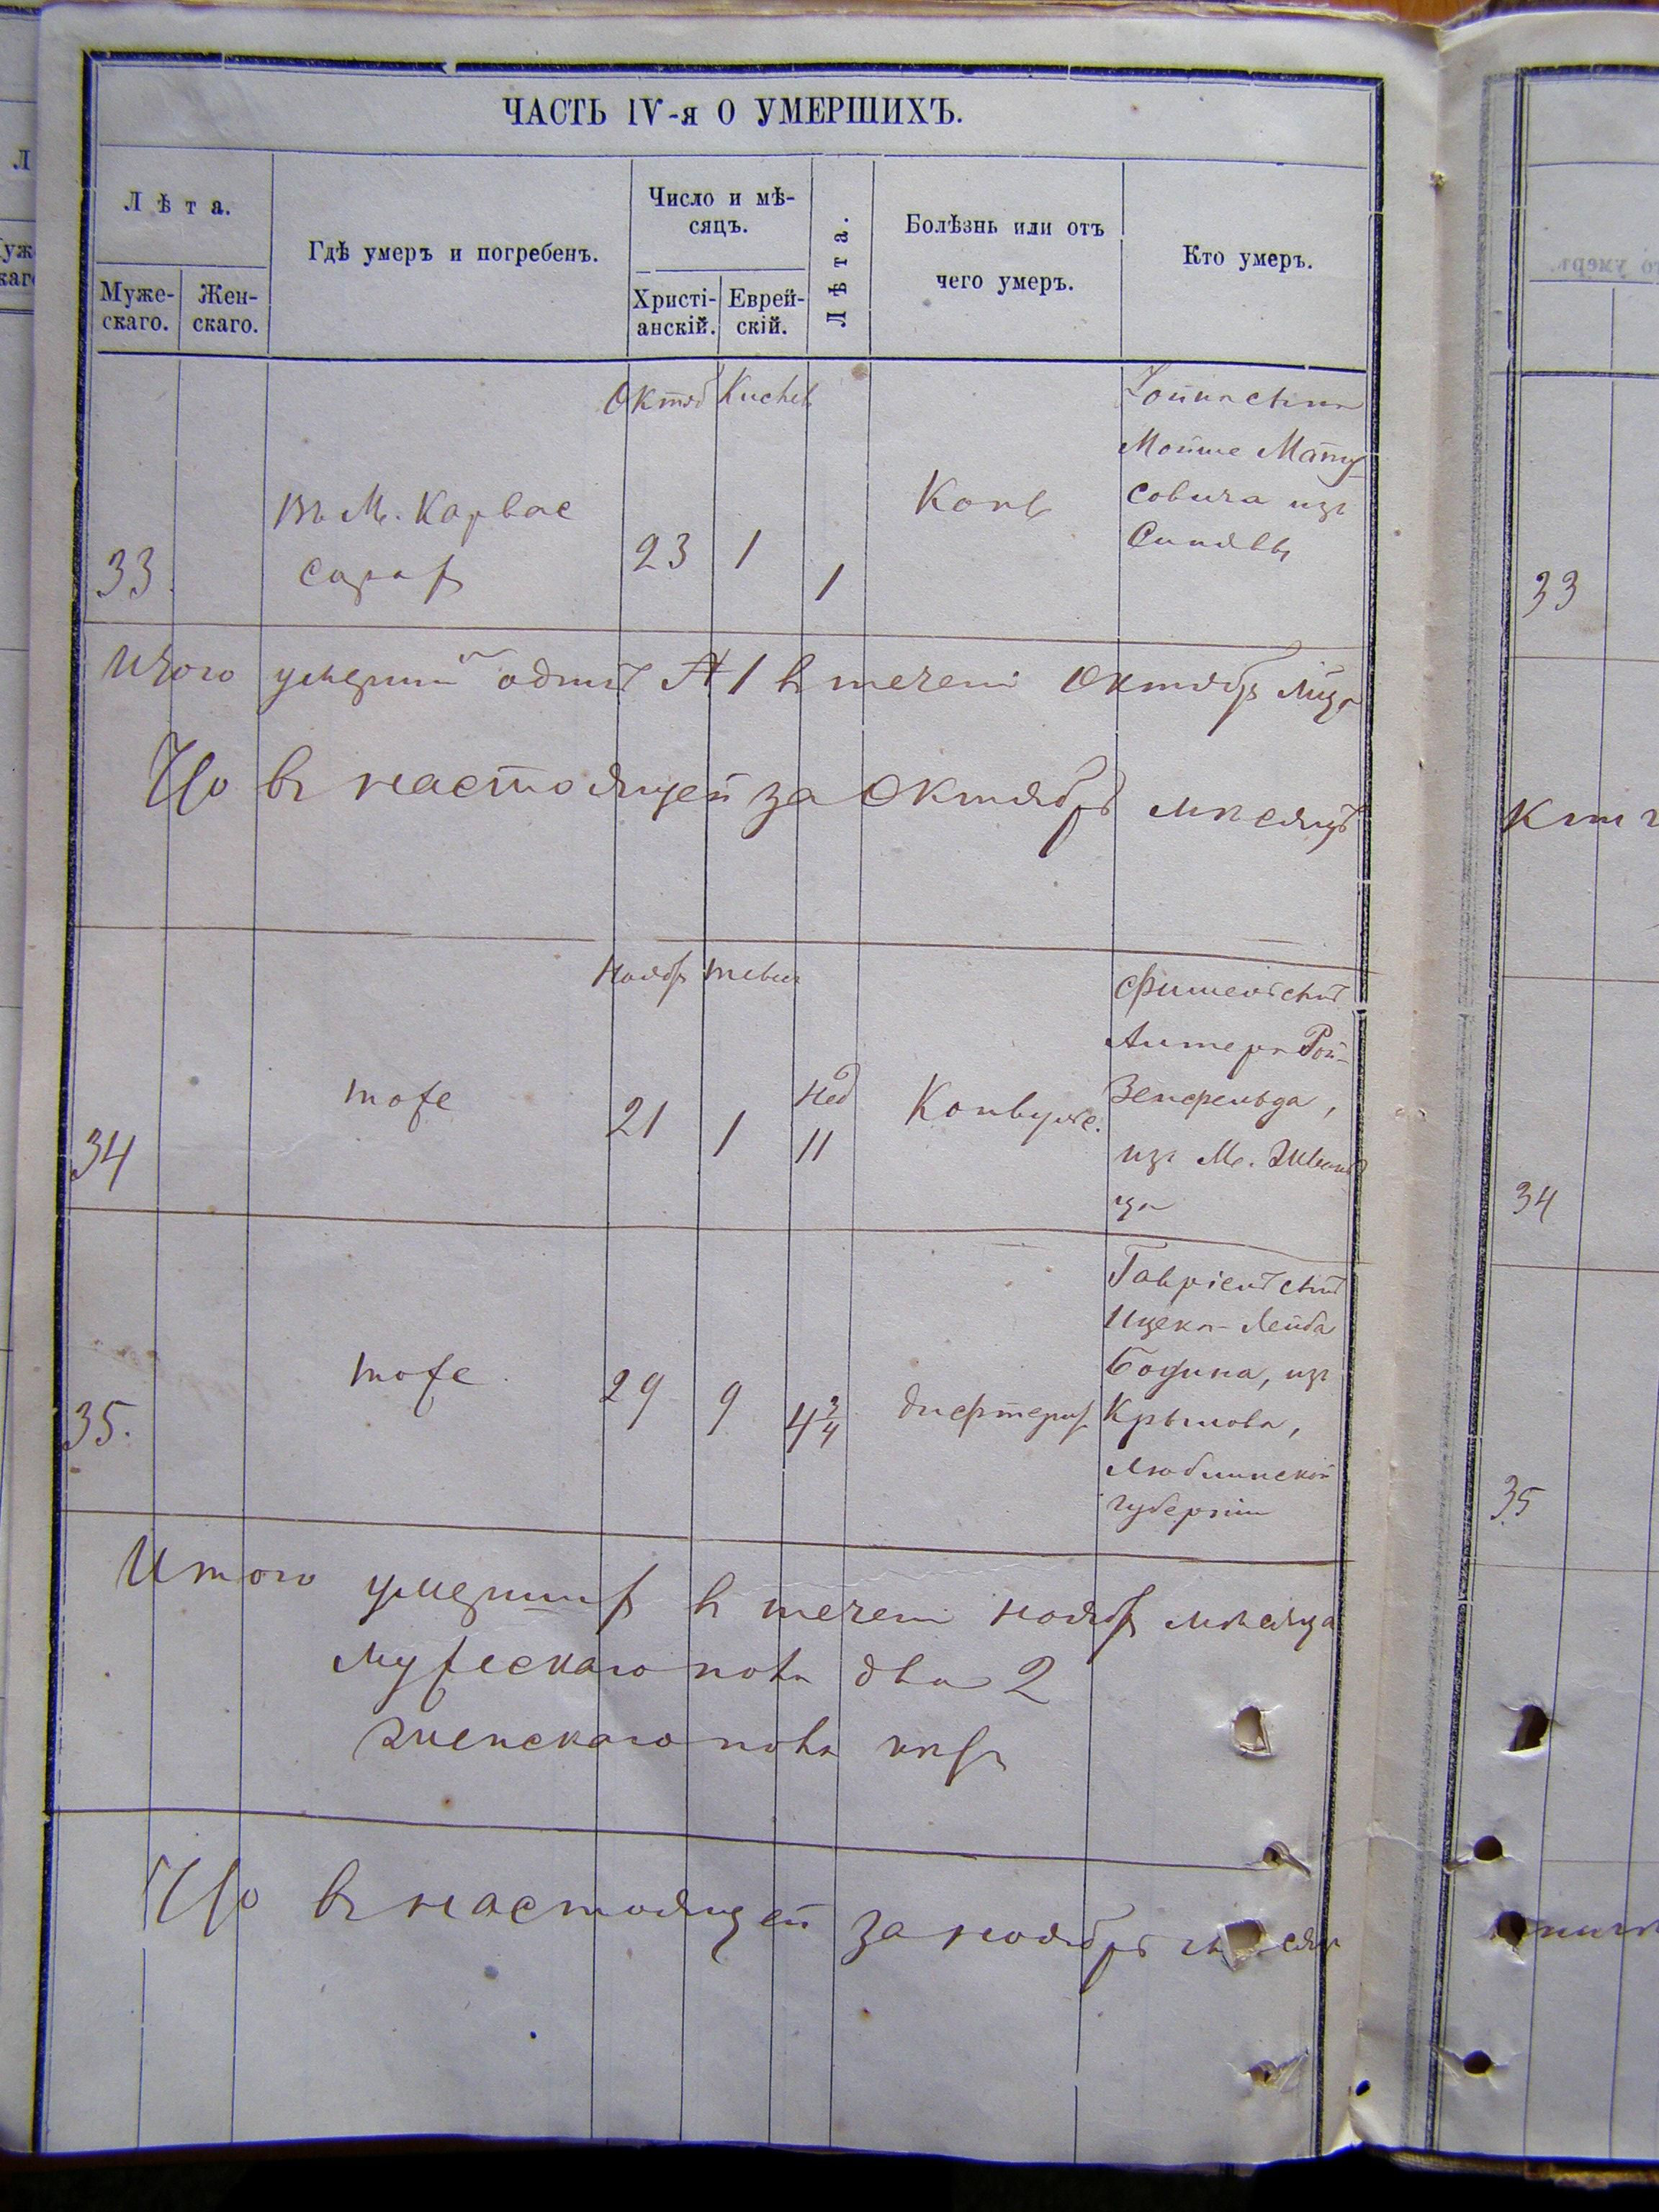 ЧАСТЬ IV-я О УМЕРШИХЪ.
Лѣта.
Муже-
скаго.
Жен-
скаго.
Гдѣ умеръ и погребенъ.
Число и мѣ-
сяцъ.
Христі-
анскій.
Еврей-
скій.
Лѣта.
Болѣзнь или отъ
чего умеръ.
Кто умеръ.
33
Въ М. Карвас
сараѣ
Октяб
23
Кислев
1
1
Корь
сынъ
Мойше Мату-
совича изъ
Синявы
Итого умерш одинъ № 1 въ течени Октябр м-ца
Что въ настоящей за Октябрь мѣсяцъ
34
тоже
Ноябр
21
Тевес
1
Нед
11
Конвульс.
Фишель сынъ
Алтера Рой-
зенфельда,
изъ М.
ца
35.
тоже
29
9
4 3/4
дифтерит
Гавріель сынъ
Ицека-Лейба
из
Крылова,
Люблинской
губерніи
Итого умерших въ течени ноябр мѣсяца
мужескаго пола два 2
женскаго пола
Что въ настоящей за ноябрь мѣсяц
33
34
35